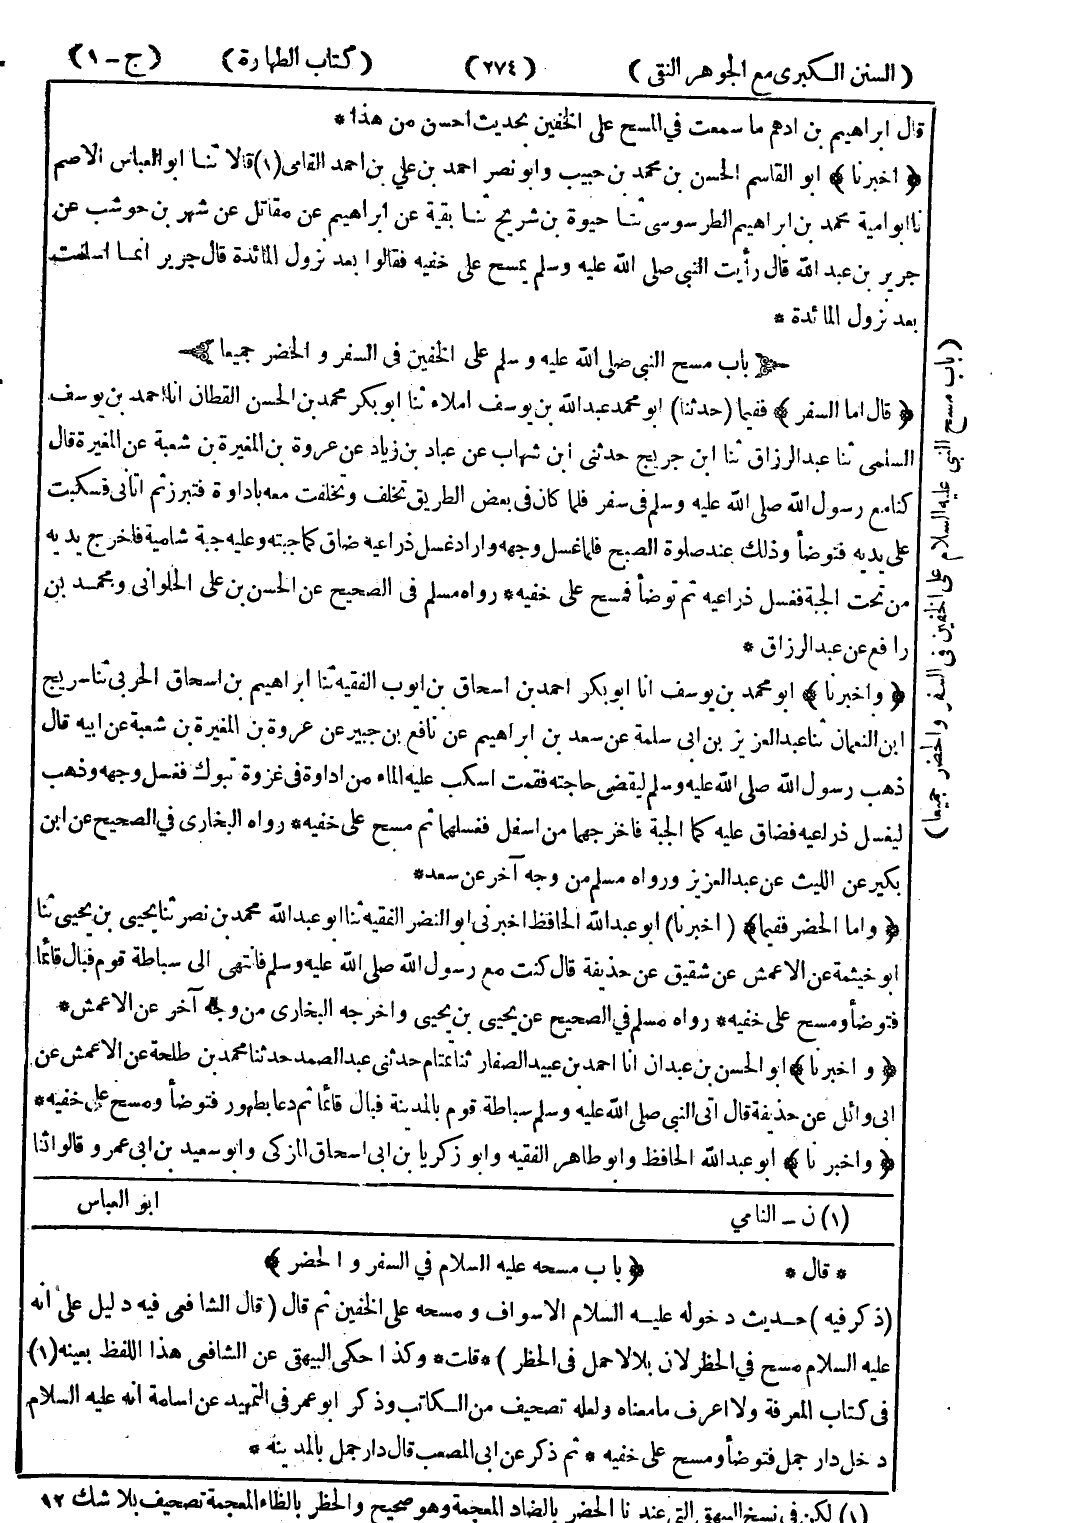 (السنن الكبرى مع الجوهر النقى) (٢٧٤) (كتاب الطهارة) (ج - ١)
قال ابراهيم بن ادهم ما سمعت في المسح على الخفين بحديث احسن من هذا *
﴿ اخبرنا ﴾ ابو القاسم الحسن بن محمد بن حبيب وابو نصر احمد بن علي بن احمد القامى (١) قالا ثنا ابو العباس الاصم
نا ابو امية محمد بن ابراهيم الطرسوسى ثنا حيوة بن شريح ثنا بقية عن ابراهيم عن مقاتل عن شهر بن حوشب عن
جرير بن عبد الله قال رأيت النبى صلى الله عليه وسلم يمسح على خفيه فقالوا بعد نزول المائدة قال جرير انما اسلمت
بعد نزول المائدة *
باب مسح النبى صلى الله عليه وسلم على الخفين فى السفر و الحضر جميعا
﴿ قال اما السفر ﴾ ففيما (حدثنا) ابو محمد عبد الله بن يوسف املاء ثنا ابو بكر محمد بن الحسن القطان انا احمد بن يوسف
السلمى ثنا عبد الرزاق ثنا ابن جريج حدثنى ابن شهاب عن عباد بن زياد عن عروة بن المغيرة بن شعبة عن المغيرة قال
كنا مع رسول الله صلى الله عليه وسلم فى سفر فلما كان فى بعض الطريق تخلف وتخلفت معه باداوة فتبرز ثم اتانى فسكبت
على يديه فتوضأ وذلك عند صلوة الصبح فلما غسل وجهه واراد غسل ذراعيه ضاق كما جبته وعليه جبة شامية فاخرج يديه
من تحت الجبة فغسل ذراعيه ثم توضأ فمسح على خفيه * رواه مسلم فى الصحيح عن الحسن بن على الحلوانى ومحمد بن
رافع عن عبد الرزاق *
﴿ واخبرنا ﴾ ابو محمد بن يوسف انا ابو بكر احمد بن اسحاق بن ايوب الفقيه ثنا ابراهيم بن اسحاق الحربى ثنا سريج
ابن النعمان ثنا عبد العزيز بن ابى سلمة عن سعد بن ابراهيم عن نافع بن جبير عن عروة بن المغيرة بن شعبة عن ابيه قال
ذهب رسول الله صلى الله عليه وسلم ليقضى حاجته فقمت اسكب عليه الماء من اداوة فى غزوة تبوك فغسل وجهه وذهب
ليغسل ذراعيه فضاق عليه كما الجبة فاخرجهما من اسفل فغسلهما ثم مسح على خفيه * رواه البخارى في الصحيح عن ابن
بكير عن الليث عن عبد العزيز ورواه مسلم من وجه آخر عن سعد *
﴿ واما الحضر ففيما ﴾ (اخبرنا) ابو عبد الله الحافظ اخبرنى ابو النضر الفقيه ثنا ابو عبد الله محمد بن نصر ثنا يحيى بن يحيى ثنا
ابو خيثمة عن الاعمش عن شقيق عن حذيفة قال كنت مع رسول الله صلى الله عليه وسلم فانتهى الى سباطة قوم فبال قائما
فتوضأ ومسح على خفيه * رواه مسلم في الصحيح عن يحيى بن يحيى واخرجه البخارى من وجه آخر عن الاعمش *
﴿ و اخبرنا ﴾ ابو الحسن بن عبدان انا احمد بن عبيد الصفار ثنا تمتام حدثنى عبد الصمد حدثنا محمد بن طلحة عن الاعمش عن
ابى وائل عن حذيفة قال اتى النبى صلى الله عليه وسلم سباطة قوم بالمدينة فبال قائما ثم دعا بطهور فتوضأ ومسح على خفيه *
﴿ واخبرنا ﴾ ابو عبد الله الحافظ وابو طاهر الفقيه وابو زكريا بن ابى اسحاق المزكى وابو سعيد بن ابى عمرو قالوا ثنا
ابو العباس
(١) ن - النامي
* قال * ﴿ باب مسحه عليه السلام في السفر و الحضر ﴾
(ذكر فيه) حديث دخوله عليه السلام الاسواف و مسحه على الخفين ثم قال (قال الشافعى فيه دليل على انه
عليه السلام مسح في الحظر لان بلالا حمل فى الحظر) * قلت * وكذا حكى البيهقى عن الشافعى هذا اللفظ بعينه (١)
فى كتاب المعرفة ولا اعرف ما معناه ولعله تصحيف من الكاتب وذكر ابو عمر فى التمهيد عن اسامة انه عليه السلام
دخل دار جمل فتوضأ ومسح على خفيه * ثم ذكر عن ابى المصعب قال دار جمل بالمدينة *
(١) لكن فى نسخ البيهقى التى عندنا الحضر بالضاد المعجمة وهو صحيح والحظر بالظاء المعجمة تصحيف بلا شك ١٢
(باب مسح النبى عليه السلام على الخفين فى السفر والحضر جميعا)